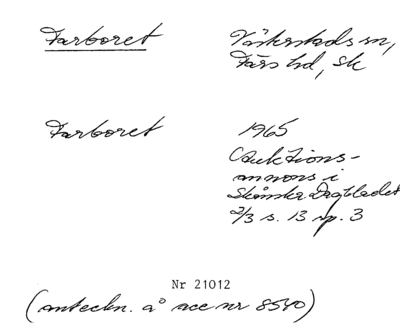 Farboret
Västerstads sn,
Färs hd, Sk
Farboret
1965
Auktions-
annons i
Skånska Dagbladet
2/3 s. 13 sp. 3
Nr 21012
(anteckn. å acc nr 8540)